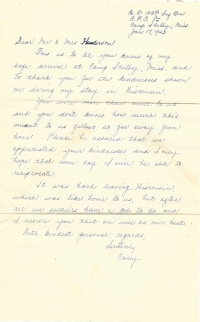 Camp Shelby, Miss.
Jan 17, 1943
Dear Mr & Mrs Henderson
This is to let you know of my
safe arrival at Camp Shelby, Miss. and
to thank you for the kindnesses shown
me during my stay in Wisconsin.
You were more than swell to us
and you don't know how much this
meant to us fellows so far away from
home. Please be assured that we
appreciated your kindnesses and I only
hope that some day I will be able to
reciprocate.
It was hard leaving Wisconsin
where was like home to us, but after
all we soldiers have a job to do and
I assure you that we will do our best.
With kindest personal regards,
Sincerely